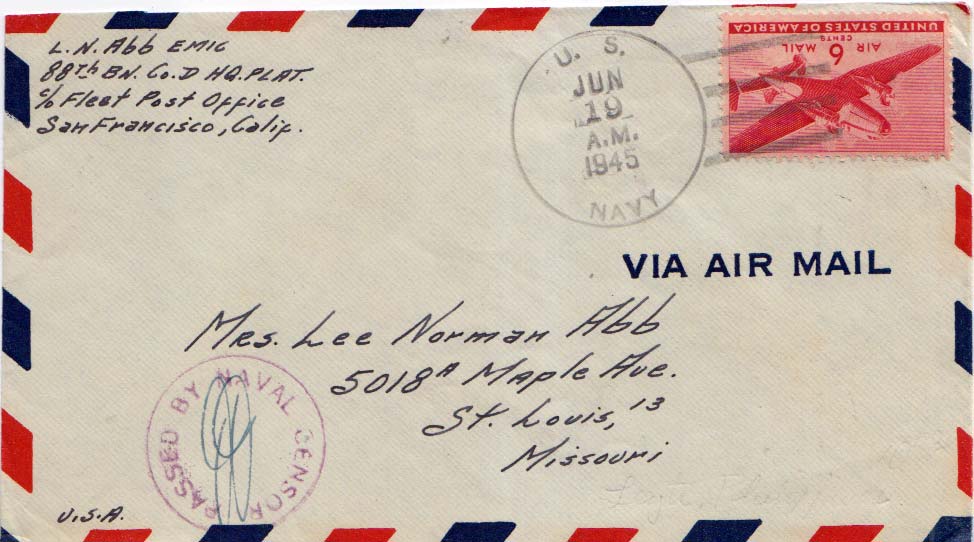 L. N. Abb EM1C
88th BN. Co. D HQ. PLAT.
c/o Fleet Post Office
San Francisco, Calif.
U. S.
JUN
19
A.M.
1945
NAVY
UNITED STATES OF AMERICA
6 CENTS
AIR MAIL
VIA AIR MAIL
Mrs. Lee Norman Abb
5018A Maple Ave.
St. Louis, 13
Missouri
PASSED BY NAVAL CENSOR
U.S.A.